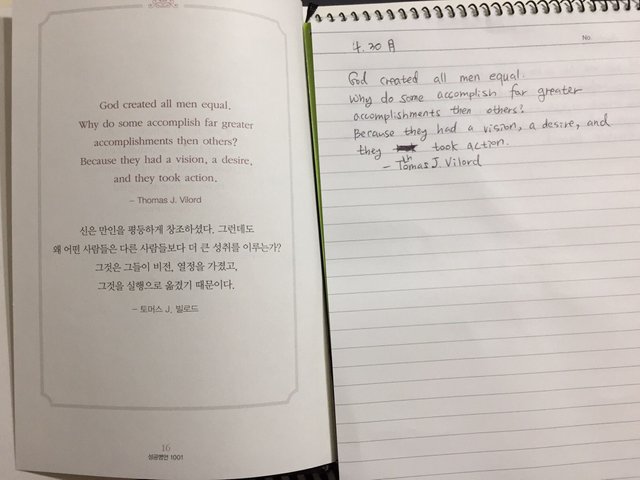 God created all men equal.
Why do some accomplish far greater
accomplishments then others?
Because they had a vision, a desire,
and they took action.
– Thomas J. Vilord
신은 만인을 평등하게 창조하셨다. 그런데도
왜 어떤 사람들은 다른 사람들보다 더 큰 성취를 이루는가?
그것은 그들이 비전, 열정을 가졌고,
그것을 실행으로 옮겼기 때문이다.
– 토머스 J. 빌로드
16
성공명언 1001
No.
4. 30 月
God created all men equal.
Why do some accomplish far greater
accomplishments then others?
Because they had a vision, a desire, and
they took action.
– Thomas J. Vilord